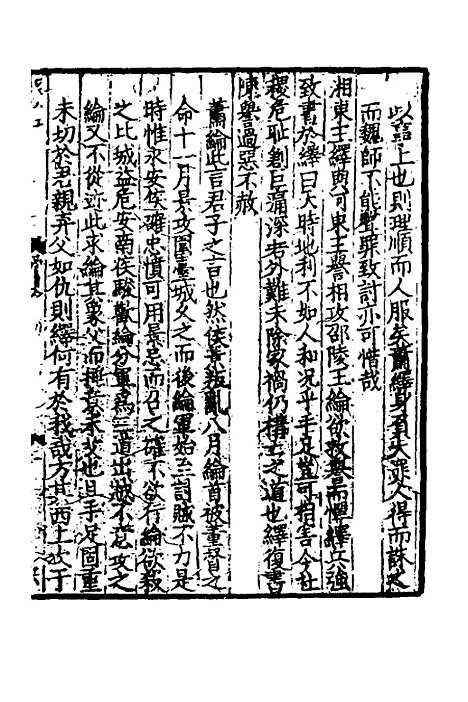 以謟上也則理順而人服矣蕭繹身至大逆人得而誅之
而魏師不能聲罪致討亦可惜哉
湘東王繹與河東王譽相攻邵陵王綸欲救譽而懼繹兵強
致書於繹曰天時地利不如人和況乎手足豈可相害今社
稷危恥創巨痛深老外難未除家禍仍構亡之道也繹復書
陳譽過惡不赦
蕭綸此言君子之言也然侯景叛亂八月綸首被董督之
命十一月景攻圍臺城久之而後綸軍始至討賊不力是
時惟永安侯確忠憤可用景忌而召之確不欲行綸欲殺
之比城益危安南侯駿勸綸分軍為三道出賊不意攻之
綸又不從近此求綸其象父而擁袁未父也且手足固重
未切於尤親弄父如仇則繹何有於我哉方其西上於于